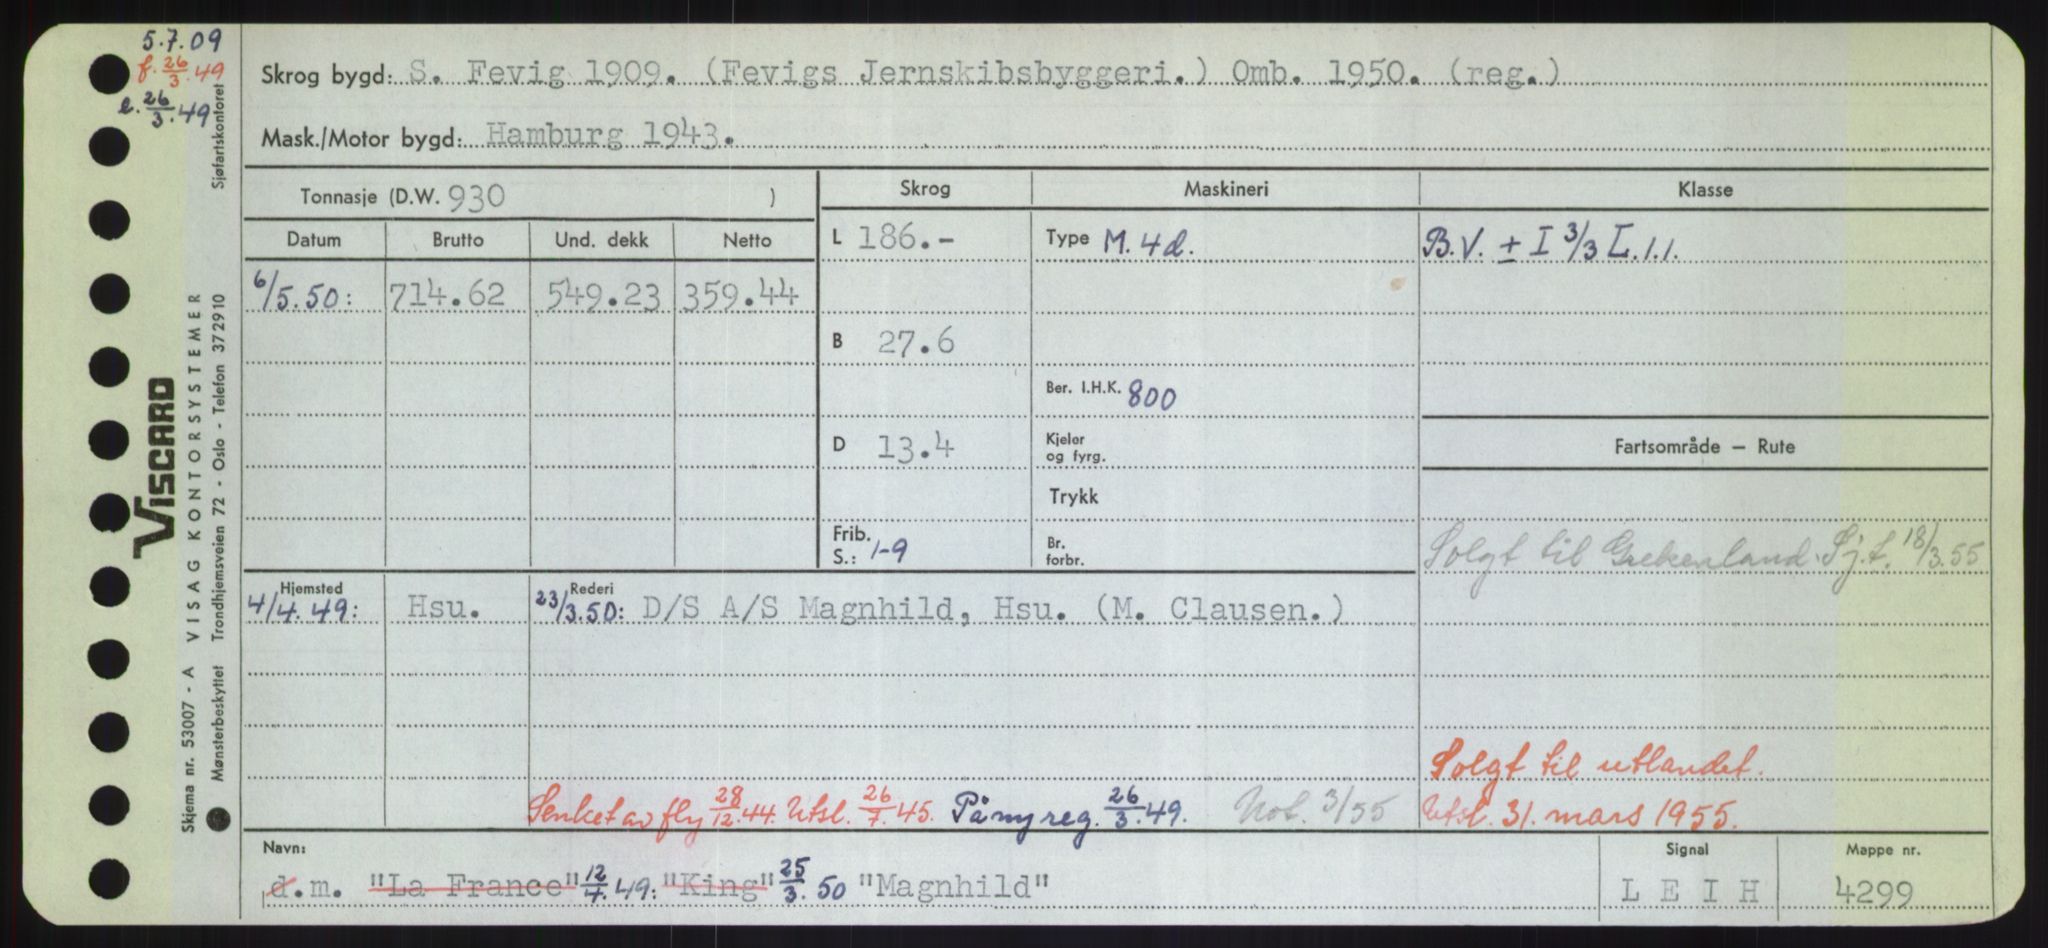 5.7.09
f. 26/3.49
e. 26/3.49
Sjøfartskontoret
Skrog bygd: S. Fevig 1909. (Fevigs Jernskibsbyggeri.) Omb. 1950. (reg.)
Mask./Motor bygd: Hamburg 1943.
Tonnasje (D.W. 930 )
Skrog
Maskineri
Klasse
Datum Brutto Und. dekk Netto
L 186.-
Type M. 4d.
B.V. ± I 3/3 L.1.1.
6/5.50: 714.62 549.23 359.44
B 27.6
Ber. I.H.K. 800
D 13.4
Kjeler og fyrg.
Fartsområde – Rute
Trykk
Frib. S.: 1-9
Br. forbr.
Solgt til Grekenland. Sj.t. 18/3.55
Hjemsted
Rederi
4/4.49: Hsu. 23/3.50: D/S A/S Magnhild, Hsu. (M. Clausen.)
Solgt til utlandet.
Senket av fly 28/12.44. Utsl. 26/7.45. På ny reg. 26/3.49. Not. 3/55
Utsl. 31. mars 1955.
Navn:
d.m. "La France" 12/4.49: "King" 25/3.50 "Magnhild"
Signal
L E I H
Mappe nr.
4299
VISCARD
Skjema nr. 53007 - A VISAG KONTORSYSTEMER
Mønsterbeskyttet Trondhjemsveien 72 - Oslo - Telefon 372910